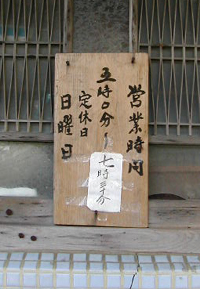 営業時間
五時〇分〜
七時三十分
定休日
日曜日